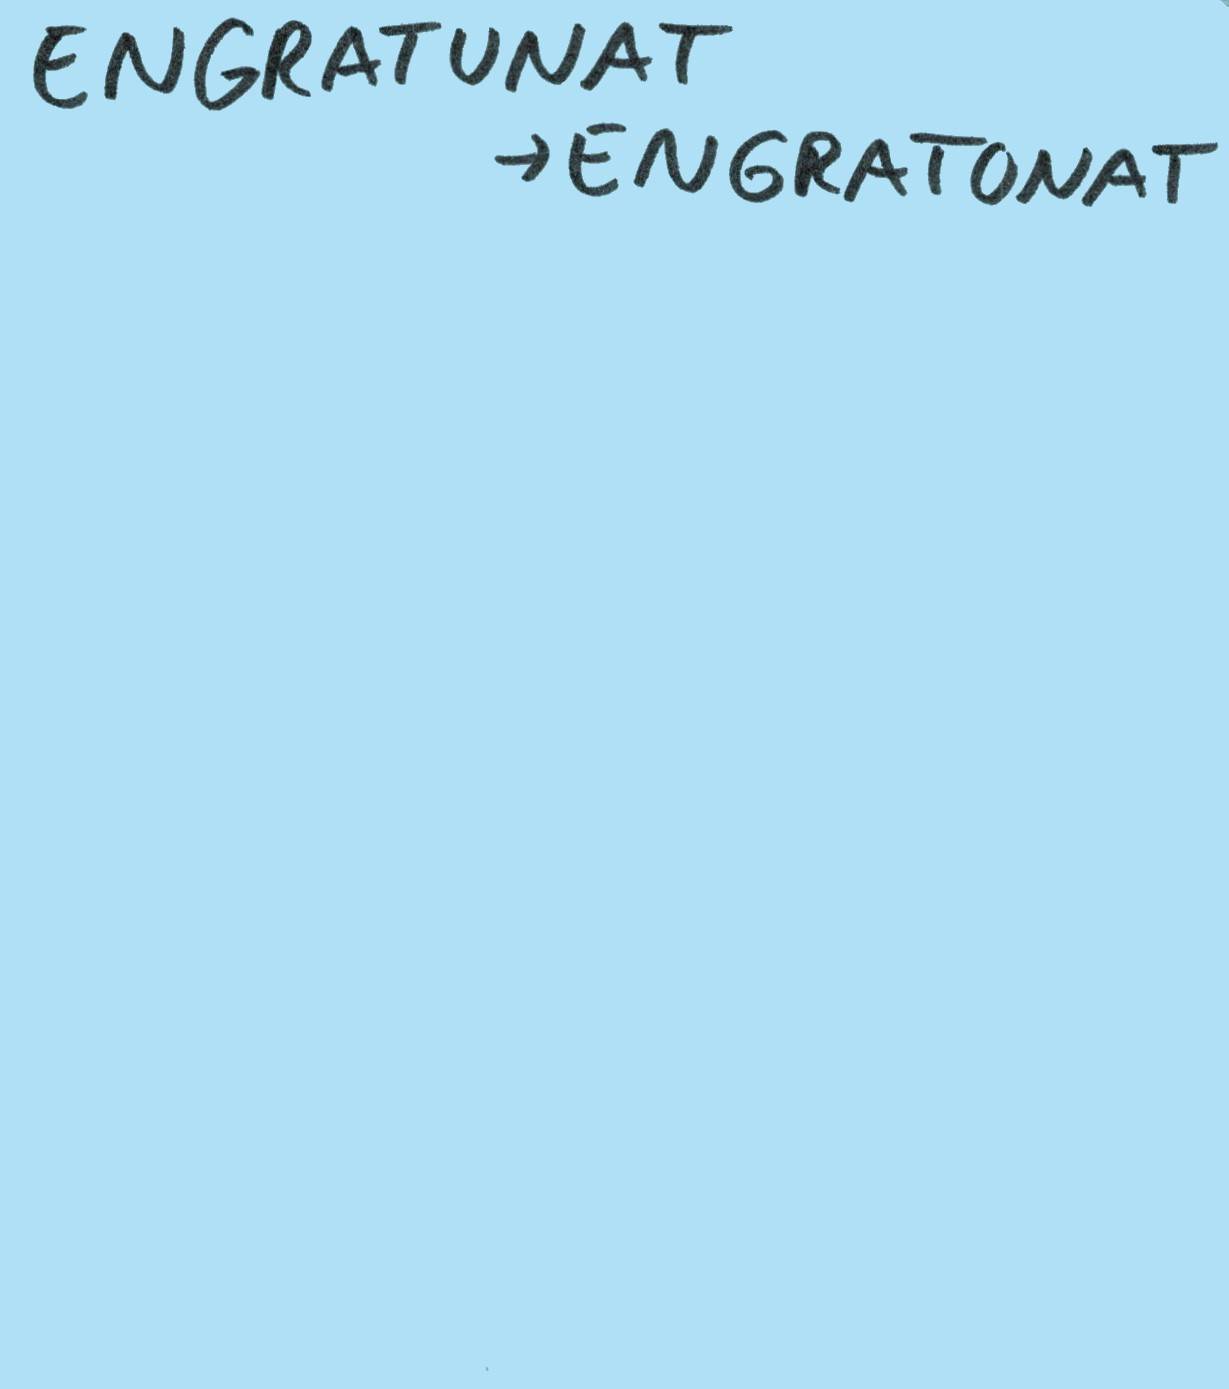 ENGRATUNAT
→ENGRATONAT